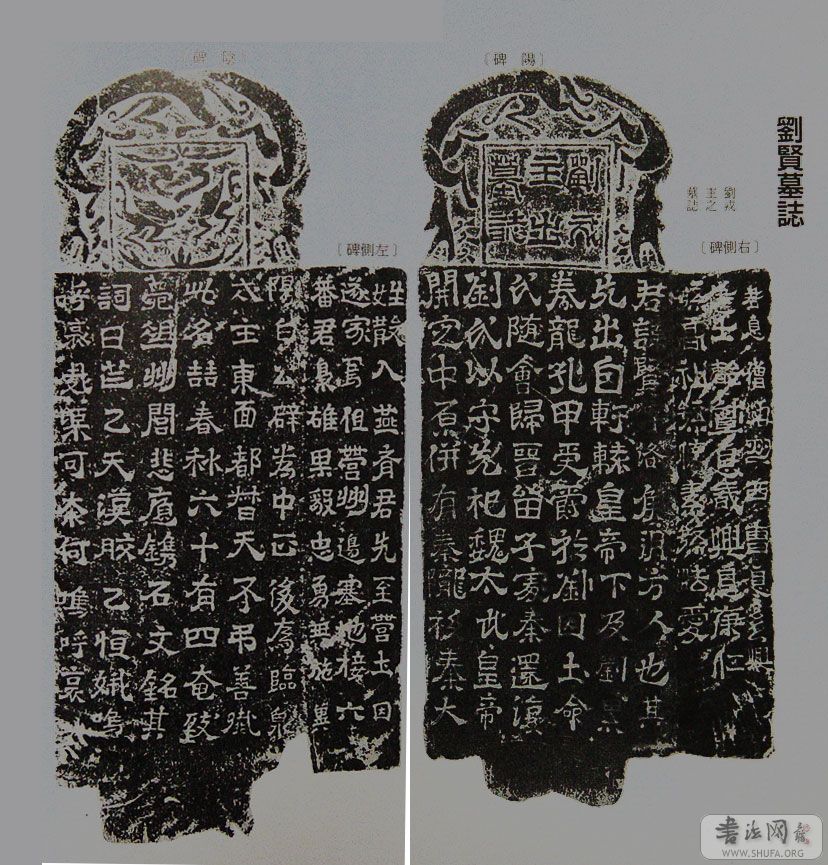 劉賢墓誌
劉戎
主之
墓誌
〔碑 陽〕
劉戎
主之
墓誌
君諱賢字洛侯朔方人也其
先出自軒轅皇帝下及劉累
豢龍孔甲受爵於劉因土命
氏隨會歸晉留子處秦還復
劉氏以守先祀魏太武皇帝
開定中原併有秦隴移秦大
〔碑 陰〕
〔碑側左〕
姓散入燕齊君先至營土因
遂家焉但營州邊塞地接六
蕃君梟雄果毅忠勇兼施冀
陽白公辟為中正後為臨泉
戍主東面都督天不弔善殲
此名喆春秋六十有四奄致
薨徂州閭悲慟鐫石文銘其
詞曰芒芒天漢皎皎恒娥嗚
呼哀哉渠可奈何嗚呼哀哉
〔碑側右〕
息僧沼州西曹息多興
主簿 息最興息康仁
孫高
书法网
WWW.SHUFA.ORG